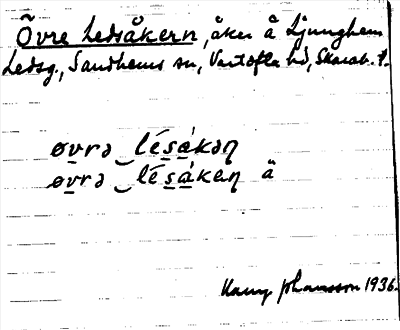 Övre Ledsåkern, åker å Ljunghem
Ledsg., Sandhems sn, Vartofta hd, Skarab. l.
øvrə ‿ lésákən
øvrə ‿ lésákaɳ ä
Harry Johansson 1936.